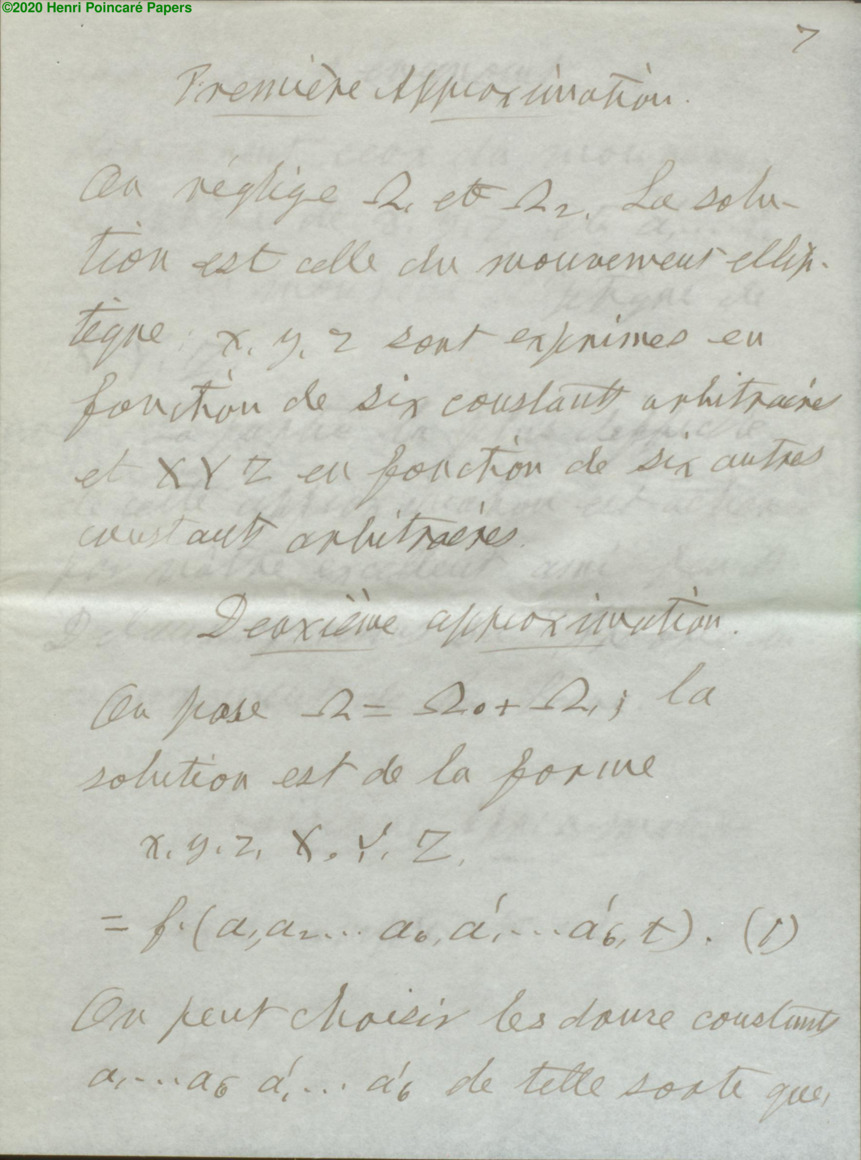 ©2020 Henri Poincaré Papers
7
Première Approximation.
On néglige Ω₁ et Ω₂. La solu-
tion est celle du mouvement ellip-
tique ; x, y, z sont exprimés en
fonction de six constants arbitraires
et X Y Z en fonction de six autres
constants arbitraires.
Deuxième approximation.
On pose Ω = Ω₀ + Ω₁ ; la
solution est de la forme
x, y, z, X, Y, Z,
= f.(a₁ a₂ ... a₆, a'₁ ... a'₆, t). (1)
On peut choisir les douze constants
a₁ ... a₆ a'₁ ... a'₆ de telle sorte que,